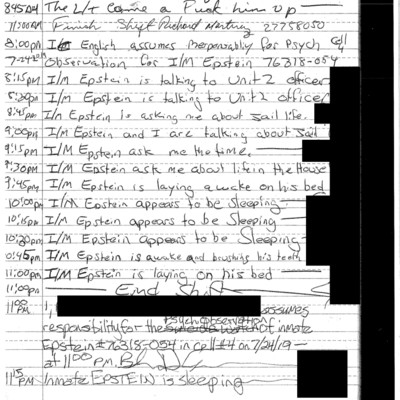 The L/t came a Pick him up
Finish Shift 27758050
8:00pm I English assumes Responsability for Psych Cell
7-24 Observation for I/M Epstein 76318-054
8:15pm I/M Epstein is talking to Unit 2 officer
8:30pm I/M Epstein is talking to Unit 2 officer
8:45pm I/m Epstein is asking me about jail life.
9:00pm I/M Epstein and I are talking about Jail
9:15pm I/M Epstein ask me the time.
9:30pm I/M Epstein ask me about life in the House
9:45pm I/M Epstein is laying awake on his bed
10:00pm I/M Epstein appears to be sleeping
10:15pm I/M Epstein appears to be Sleeping
10:30pm I/M Epstein appears to be Sleeping
10:45pm I/M Epstein is awake and brushing his teeth
11:00pm I/M Epstein is laying on his bed
11:00pm End Shift
11:00 PM I, assumes
Psych Observation
responsibility for the of inmate
Epstein #76318-054 in cell #4 on 7/24/19
at 11:00 P.M.
11:15 PM Inmate EPSTEIN is sleeping